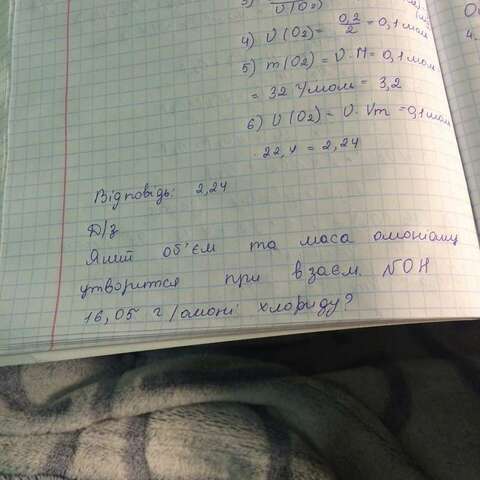 3) V(O2)
4) V(O2) = 0,2/2 = 0,1 мол
5) m(O2) = V · M = 0,1 мол
= 32 г/мол = 3,2
6) V(O2) = V · Vm = 0,1 мол
· 22,4 = 2,24
Відповідь: 2,24
Д/з
Який об'єм та маса амоніаку
утвориться при взаєм. NOH
16,05 г/амоні хлориду?